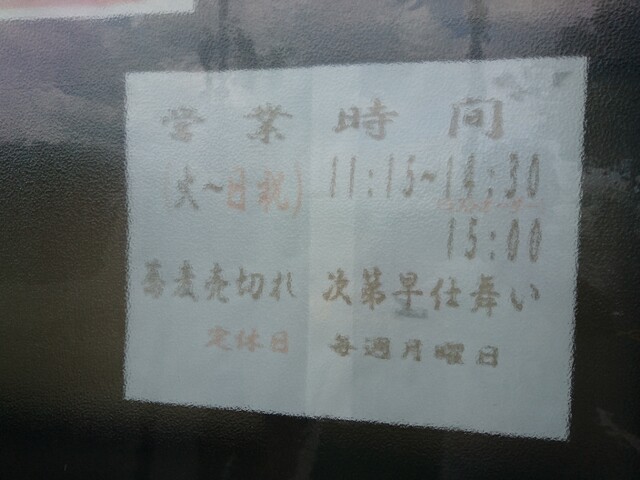 営業時間
(火~日祝) 11:15~14:30
15:00
蕎麦売切れ 次第早仕舞い
定休日 毎週月曜日